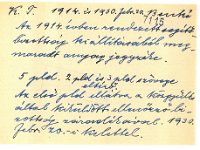 K. T. 1914. és 1930. febr. 20. Benkő
1115
Az 1914. évben rendezett segítő
bizottság kiállításából meg-
maradt anyag jegyzéke.
5 pld. 2 pld és 3 pld szövege
eltérő.
Az első pld ellátva a közgyűlés
által kiküldött ellenőrző bi-
zottság záradékával. 1930.
febr. 20.-i kelettel.